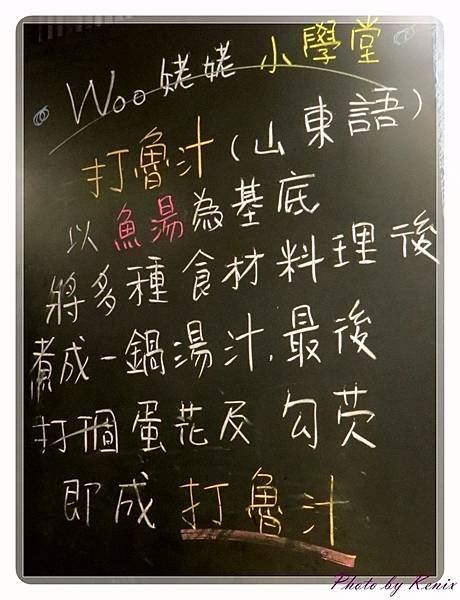 Woo姥姥 小學堂
打魯汁(山東語)
以魚湯為基底
將多種食材料理後
煮成一鍋湯汁,最後
打個蛋花及勾芡
即成打魯汁
Photo by Kenix